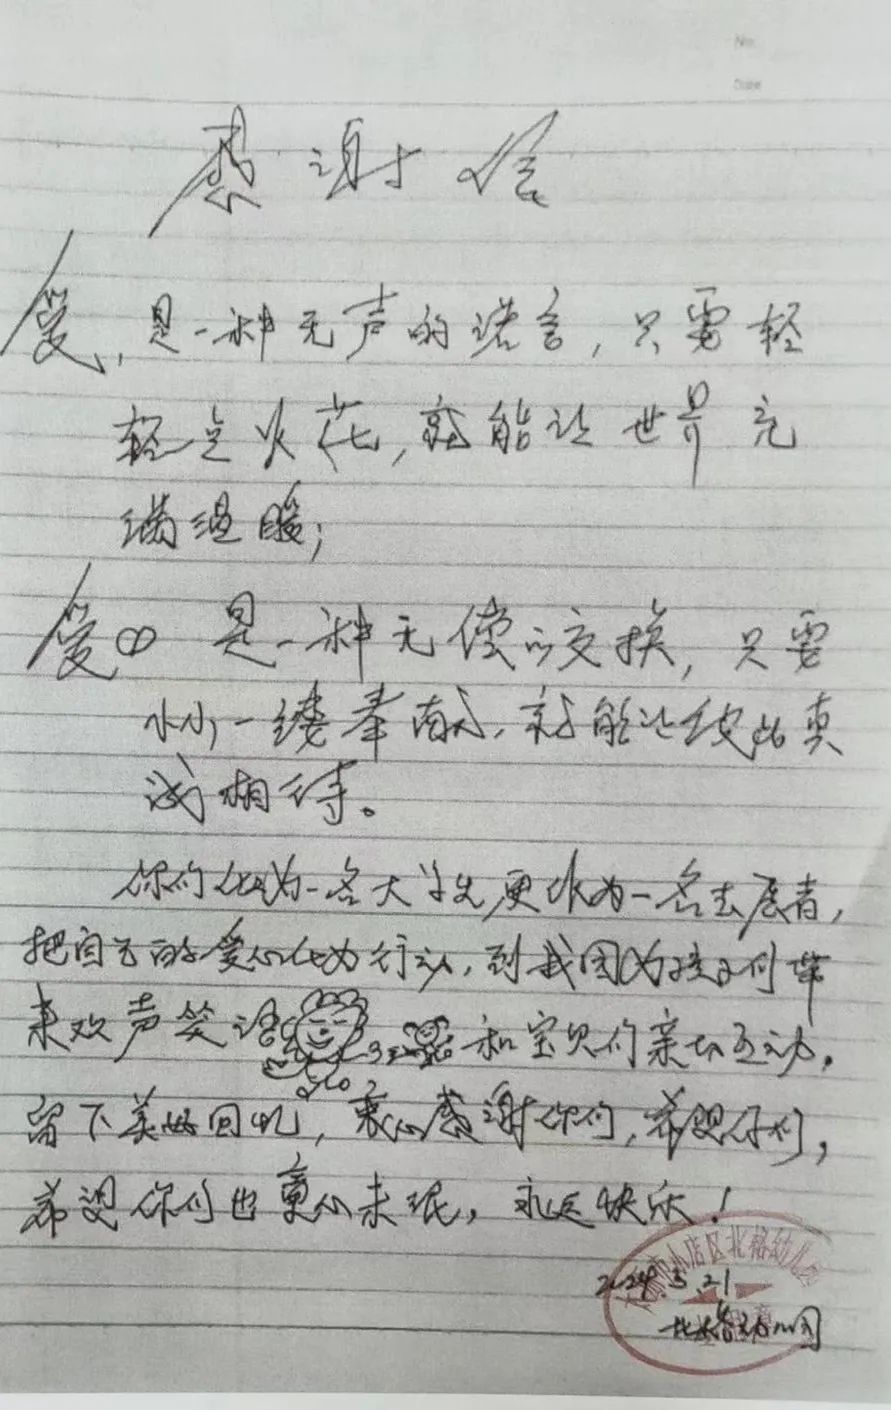 No.
Date
感谢信
爱,是一种无声的诺言,只需轻
轻点火花,就能让世界充
满温暖;
爱 是一种无偿的交换,只需
小小一缕奉献,就能让彼此真
诚相待。
你们作为一名大学生更作为一名志愿者,
把自己的爱心化为行动,到我园为孩子们带
来欢声笑语 和宝贝们亲切互动,
留下美好回忆,衷心感谢你们,希望你们,
希望你们也童心未泯,永远快乐!
太原市小店区北格幼儿园
2024.5.21
北格幼儿园